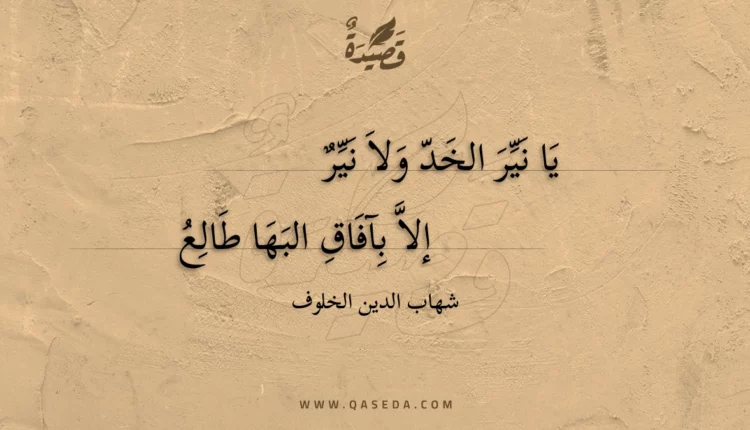 قَصِيْدَةٌ
يَا نَيِّرَ الخَدّ وَلاَ نَيِّرٌ
إلاَّ بِآفَاقِ البَهَا طَالِعُ
شهاب الدين الخلوف
WWW.QASEDA.COM